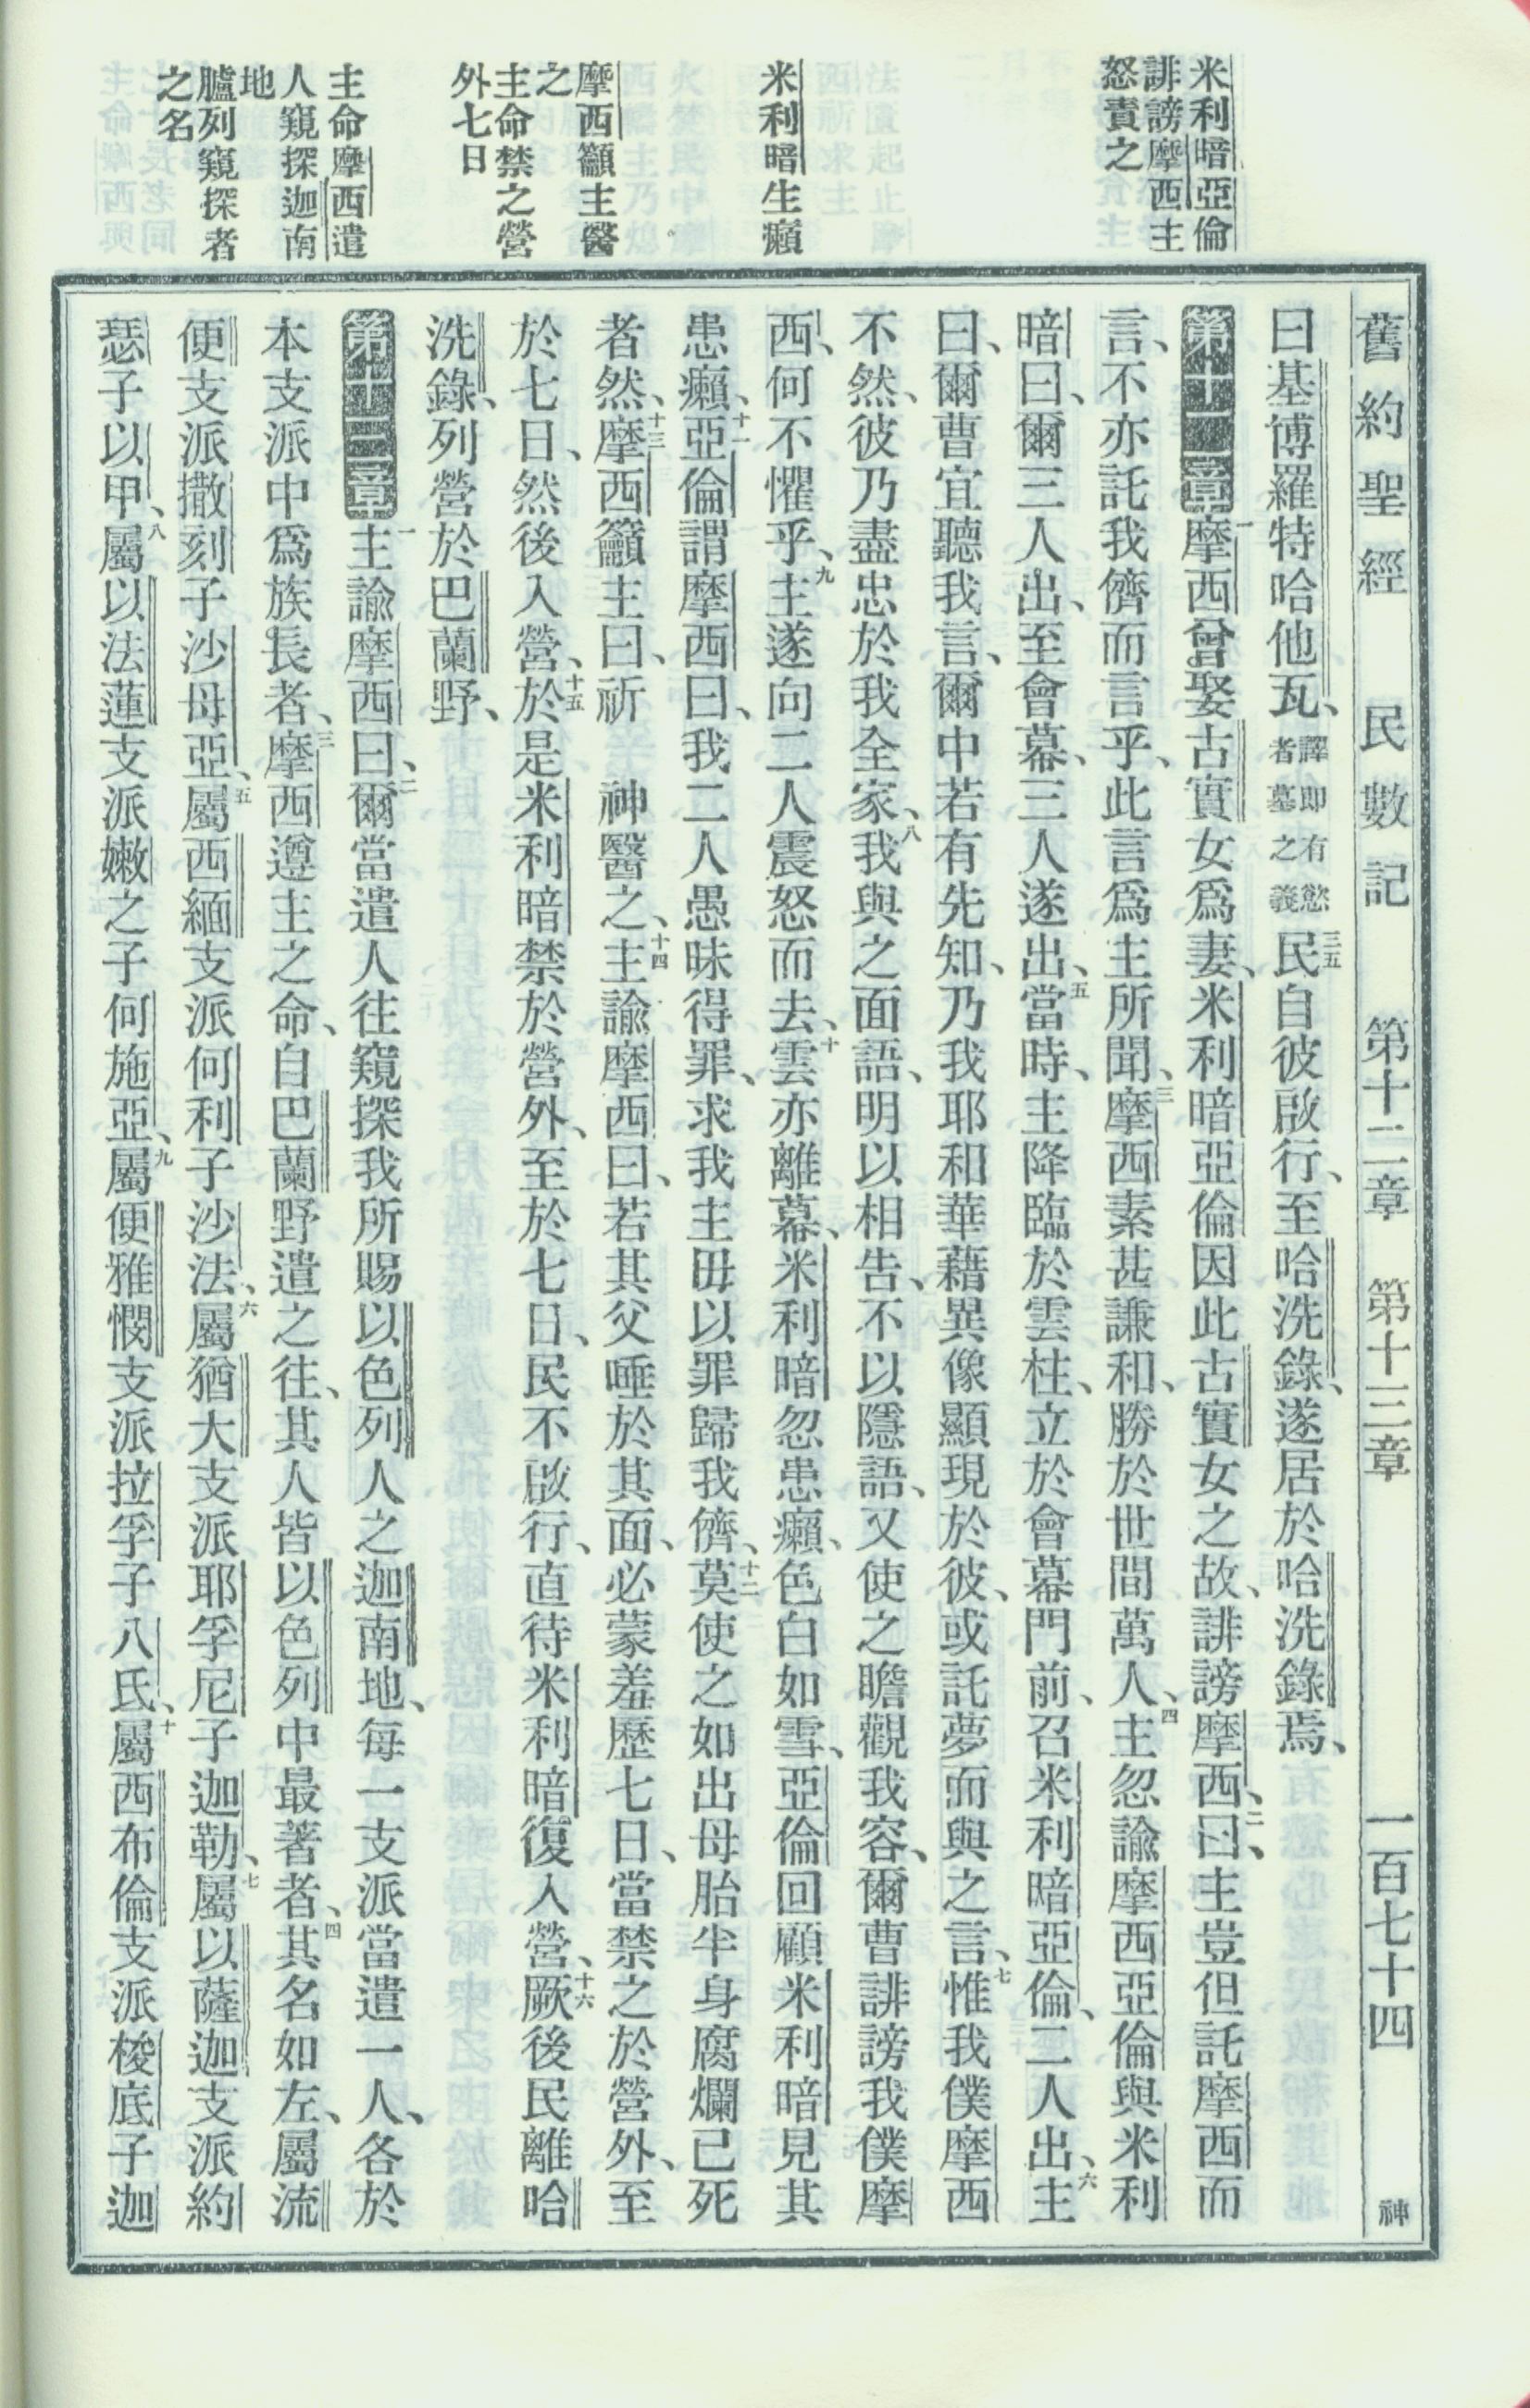 舊約聖經 民數記 第十二章 第十三章 一百七十四 神
米利暗亞倫
誹謗摩西主
怒責之
米利暗生癩
摩西籲主醫
之
主命禁之營
外七日
主命摩西遣
人窺探迦南
地
臚列窺探者
之名
曰基博羅特哈他瓦、譯即有慾者墓之義三五民自彼啟行、至哈洗錄、遂居於哈洗錄焉、
第十二章一摩西曾娶古實女爲妻、米利暗亞倫因此古實女之故、誹謗摩西、二曰、主豈但託摩西而
言、不亦託我儕而言乎、此言爲主所聞、三摩西素甚謙和、勝於世間萬人、四主忽諭摩西亞倫與米利
暗曰、爾三人出、至會幕、三人遂出、五當時、主降臨於雲柱、立於會幕門前、召米利暗亞倫、二人出、六主
曰、爾曹宜聽我言、爾中若有先知、乃我耶和華藉異像顯現於彼、或託夢而與之言、七惟我僕摩西
不然、彼乃盡忠於我全家、八我與之面語、明以相告、不以隱語、又使之瞻觀我容、爾曹誹謗我僕摩
西、何不懼乎、九主遂向二人震怒而去、十雲亦離幕、米利暗忽患癩、色白如雪、亞倫回顧米利暗見其
患癩、十一亞倫謂摩西曰、我二人愚昧得罪、求我主毋以罪歸我儕、十二莫使之如出母胎半身腐爛已死
者然、十三摩西籲主曰、祈 神醫之、十四主諭摩西曰、若其父唾於其面、必蒙羞歷七日、當禁之於營外、至
於七日、然後入營、十五於是米利暗禁於營外、至於七日、民不啟行、直待米利暗復入營、十六厥後民離哈
洗錄、列營於巴蘭野、
第十三章一主諭摩西曰、二爾當遣人往窺探我所賜以色列人之迦南地、每一支派當遣一人、各於
本支派中爲族長者、三摩西遵主之命、自巴蘭野遣之往、其人皆以色列中最著者、四其名如左、屬流
便支派撒刻子沙母亞、五屬西緬支派何利子沙法、六屬猶大支派耶孚尼子迦勒、七屬以薩迦支派約
瑟子以甲、八屬以法蓮支派嫩之子何施亞、九屬便雅憫支派拉孚子八氏、十屬西布倫支派梭底子迦